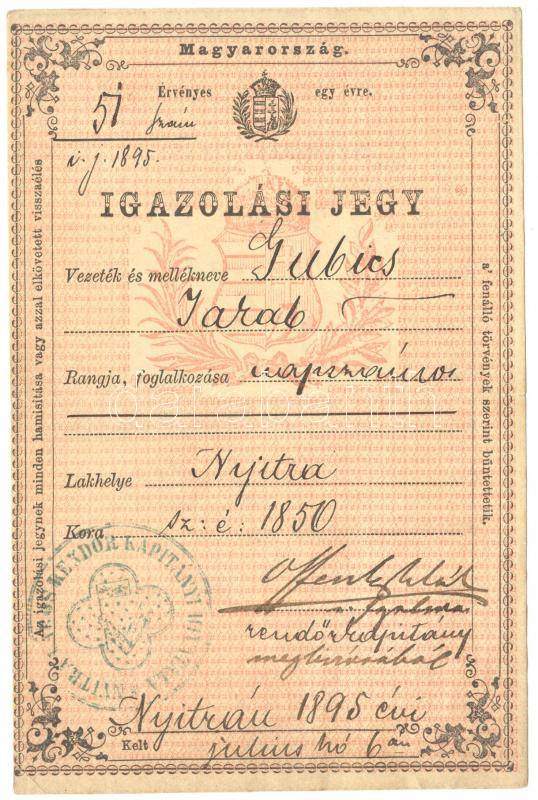 Magyarország.
51 szám
Érvényes egy évre.
i. j. 1895.
IGAZOLÁSI JEGY
Vezeték és mellékneve Gubics
Jarab
Rangja, foglalkozása napszámos
Lakhelye Nyitra
Kora sz: é: 1850
rendőrkapitány
megbízásából
Nyitrán 1895 évi
Kelt julius hó 6 án
Az igazolási jegynek minden hamisítása vagy azzal elkövetett visszaélés
a' fenálló törvények szerint büntettetik.
RENDŐR KAPITÁNYI HIVATALA
NYITRA
darabanth